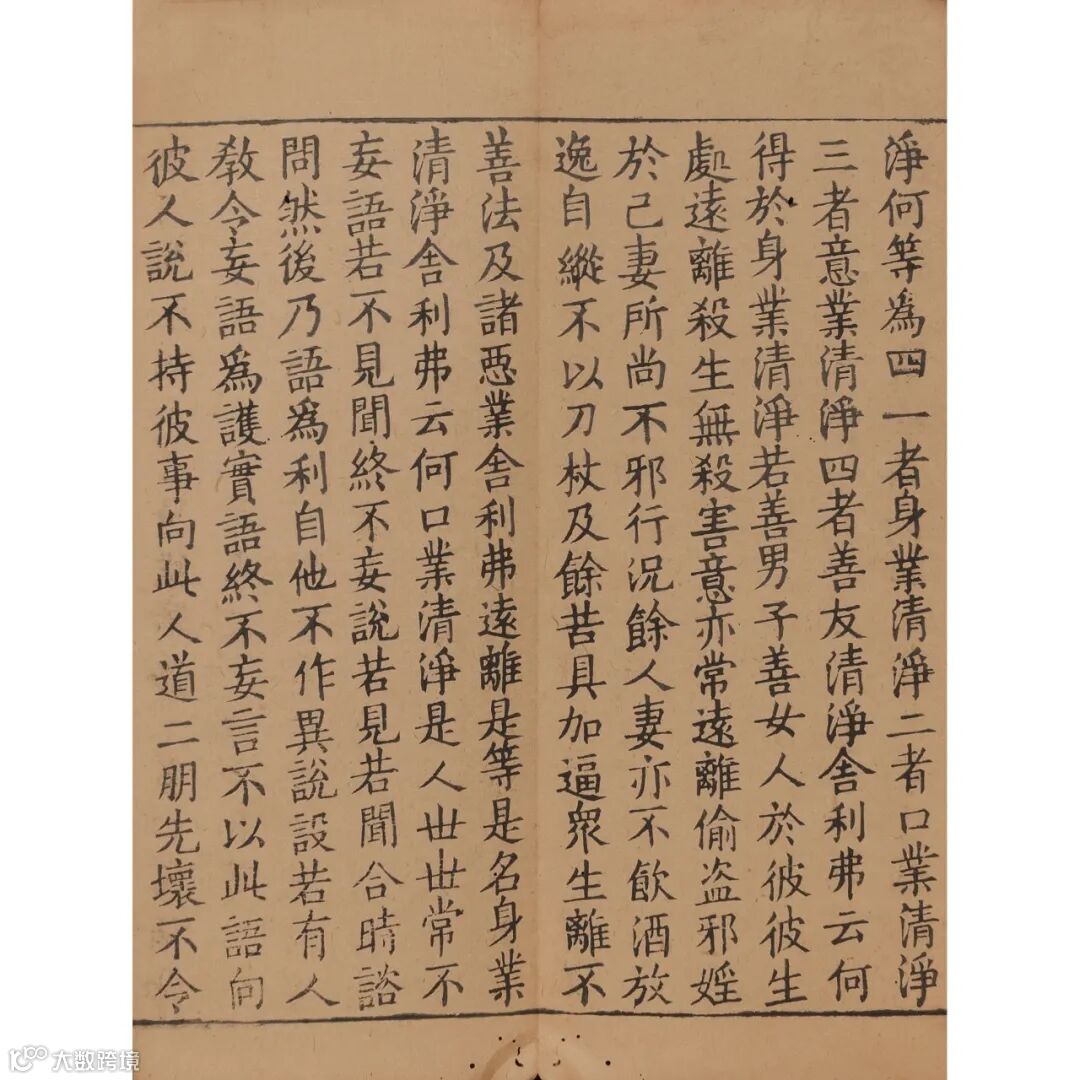 淨何等為四一者身業清淨二者口業清淨
三者意業清淨四者善友清淨舍利弗云何
得於身業清淨若善男子善女人於彼彼生
處遠離殺生無殺害意亦常遠離偷盜邪婬
於己妻所尚不邪行況餘人妻亦不飲酒放
逸自縱不以刀杖及餘苦具加逼衆生離不
善法及諸惡業舍利弗遠離是等是名身業
清淨舍利弗云何口業清淨是人世世常不
妄語若不見聞終不妄說若見若聞合時諮
問然後乃語為利自他不作異說設若有人
教令妄語為護實語終不妄言不以此語向
彼人說不持彼事向此人道二朋先壞不令
大数跨境